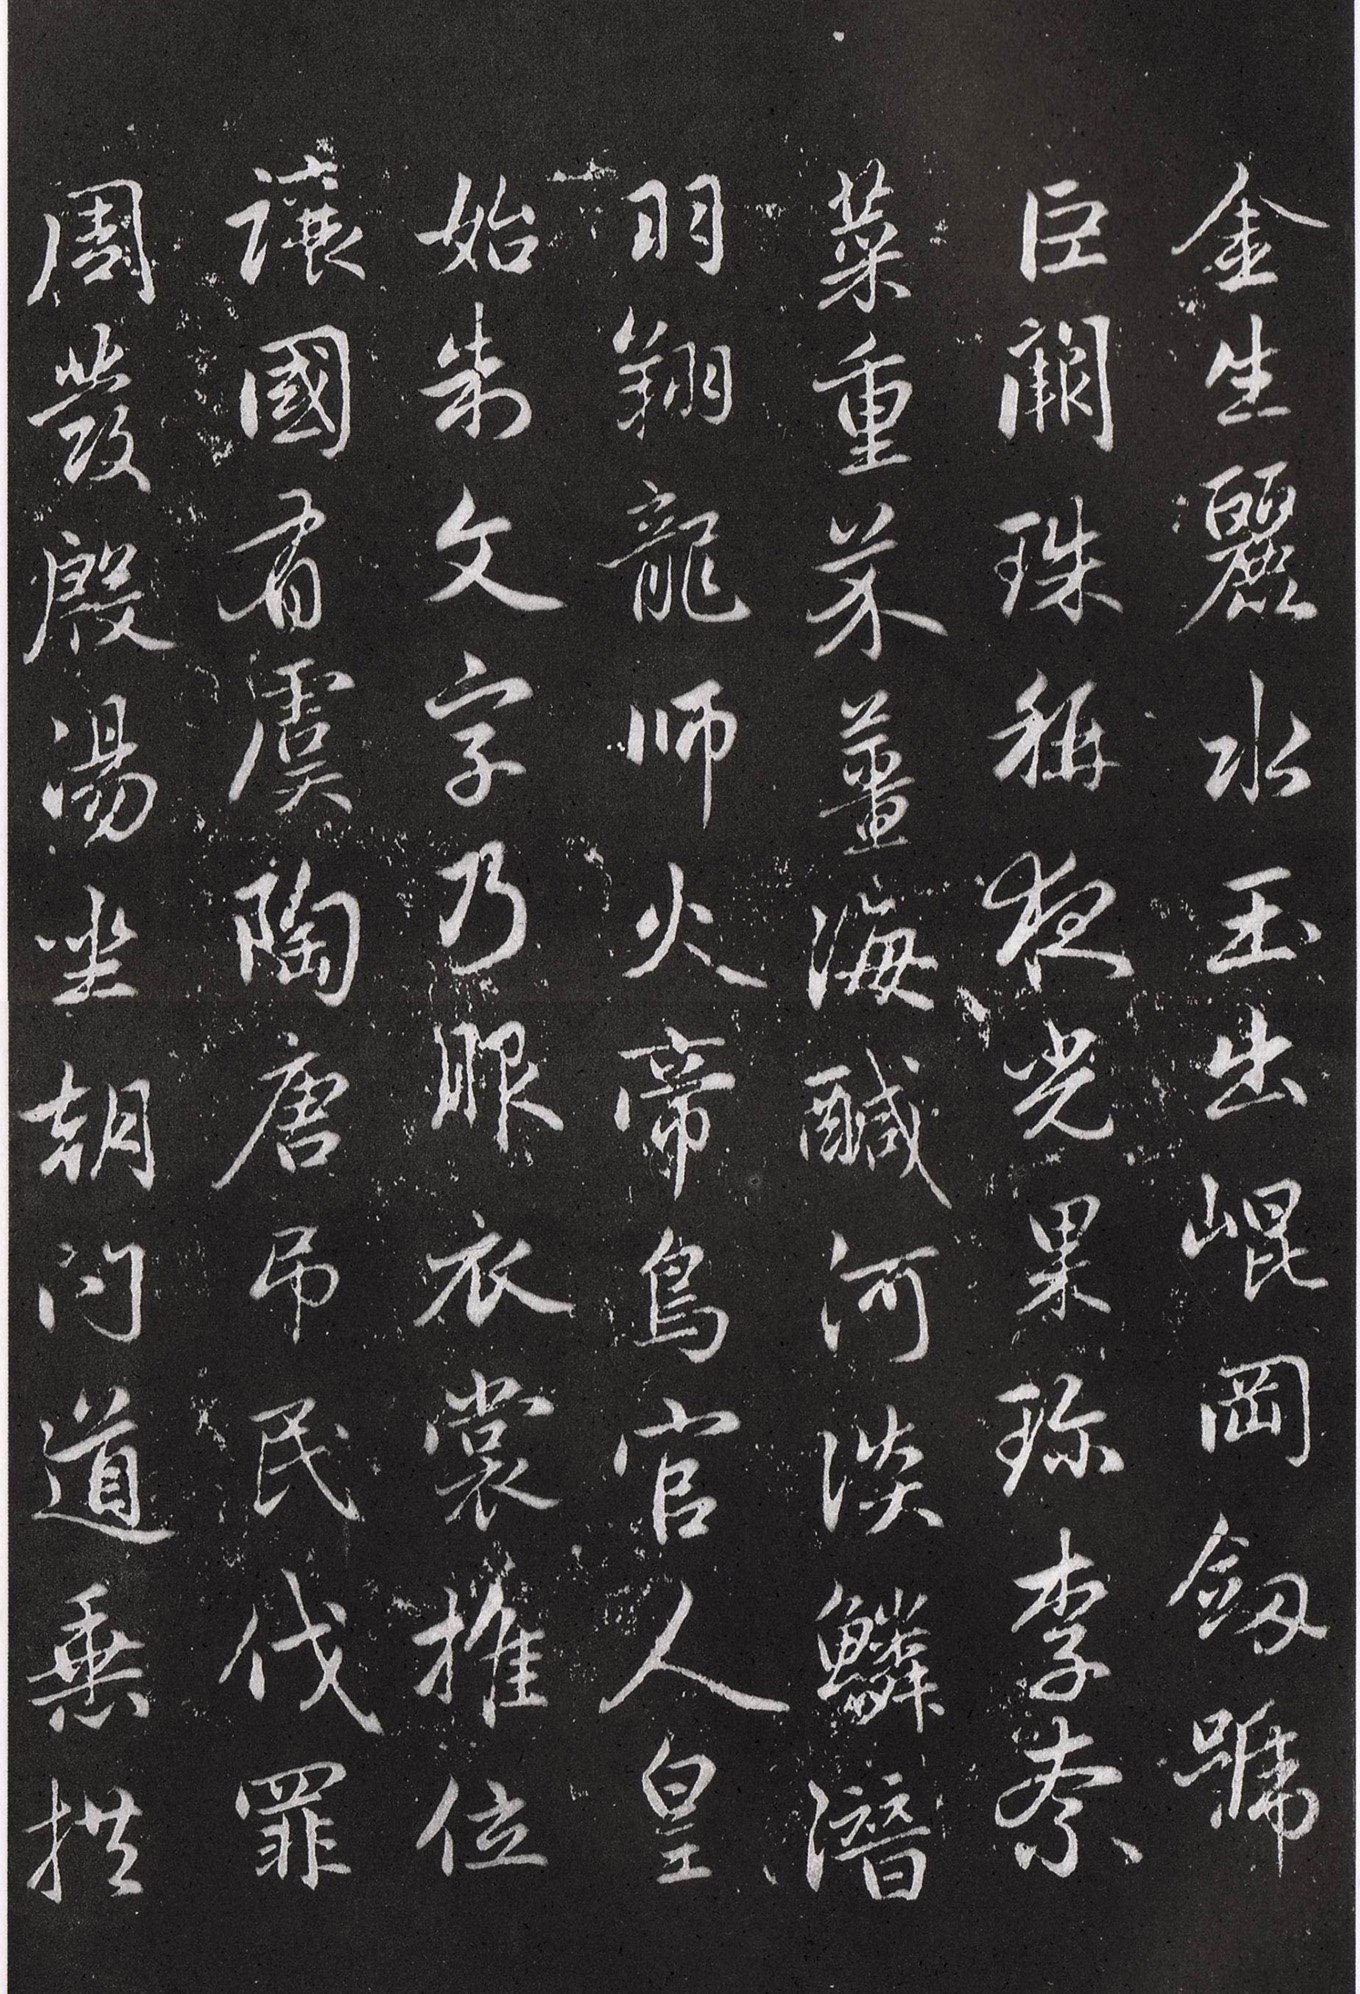 金生麗水玉出崐岡劔號
巨闕珠稱夜光果珎李柰
菜重芥薑海醎河淡鱗潛
羽翔龍師火帝鳥官人皇
始制文字乃服衣裳推位
讓國有虞陶唐吊民伐罪
周發殷湯坐朝問道垂拱